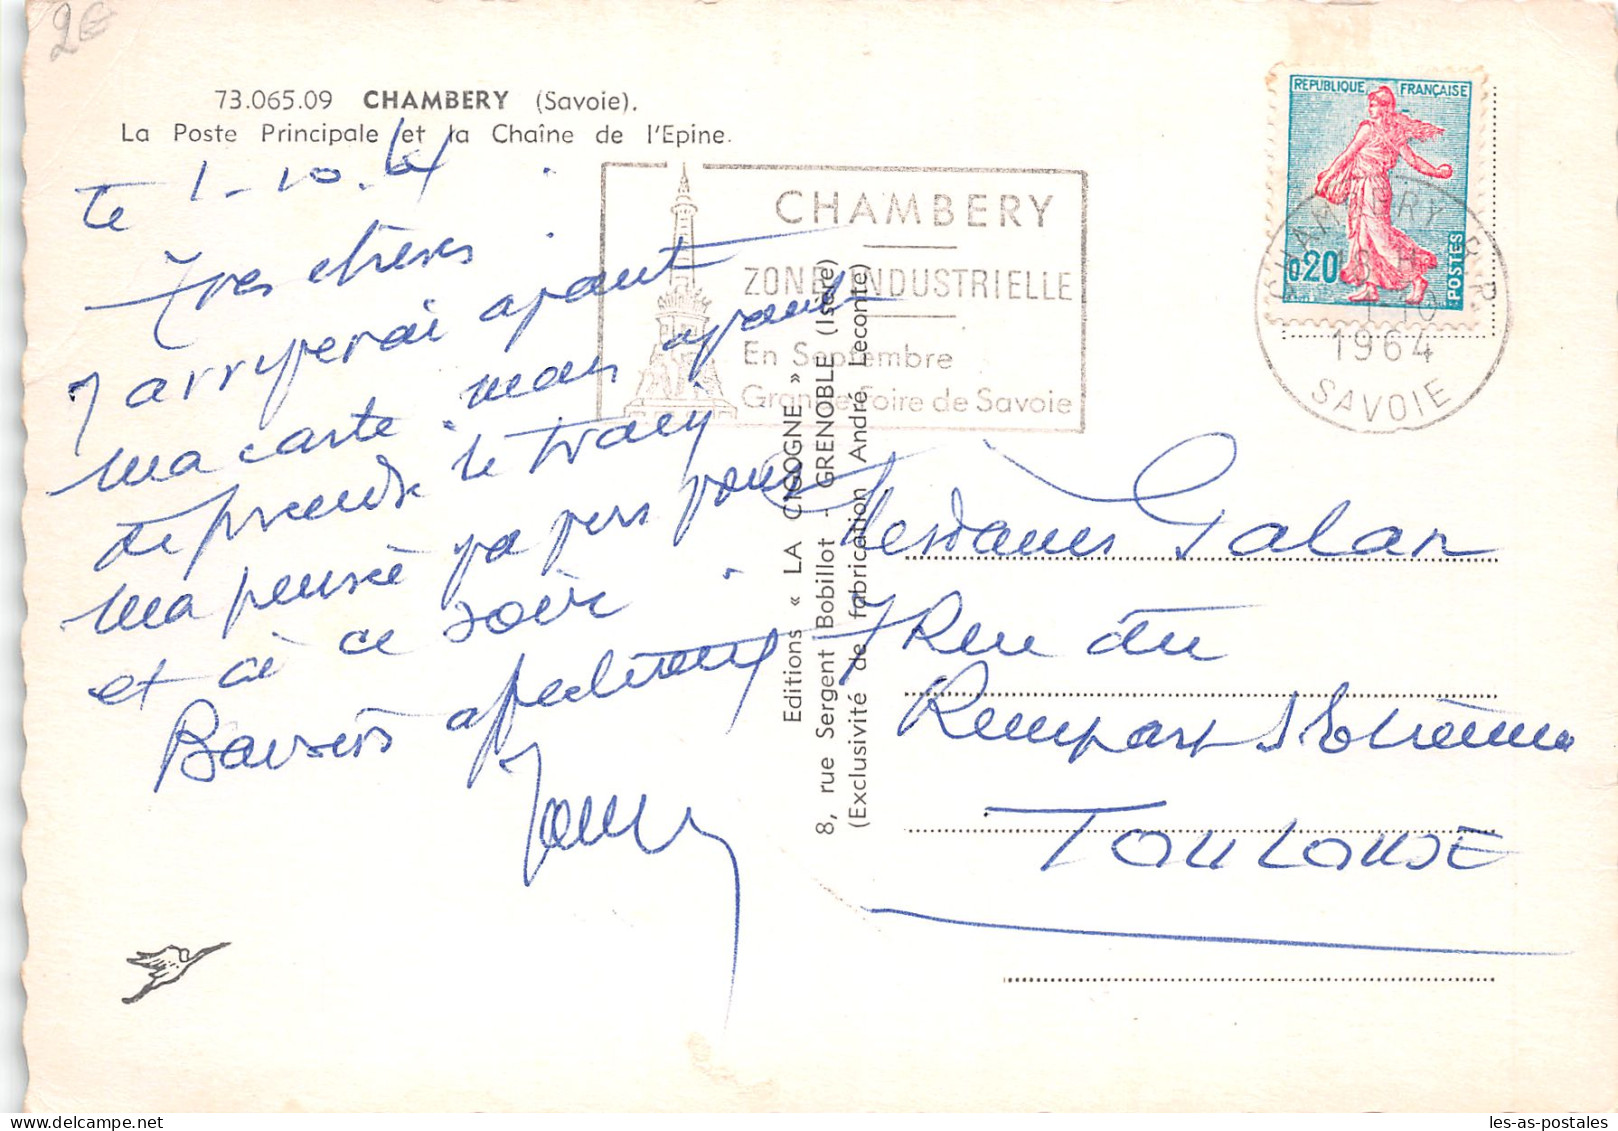 2€
73.065.09 CHAMBERY (Savoie).
La Poste Principale et la Chaîne de l'Epine.
Le 1-10-64
Tres chères
J arriverai avant
ma carte mais avant
de prendre le train
ma pensée va vers vous
et à ce soir.
Baisers affectueux
CHAMBERY
ZONE INDUSTRIELLE
En Septembre
Grande Foire de Savoie
REPUBLIQUE FRANÇAISE
0,20
POSTES
CHAMBERY
18 H
1-10
1964
SAVOIE
Editions « LA CIGOGNE »
8, rue Sergent Bobillot - GRENOBLE (Isère)
(Exclusivité de fabrication André Leconte)
Mesdames Galan
7 Rue du
Rempart St Etienne
TOULOUSE
les-as-postales